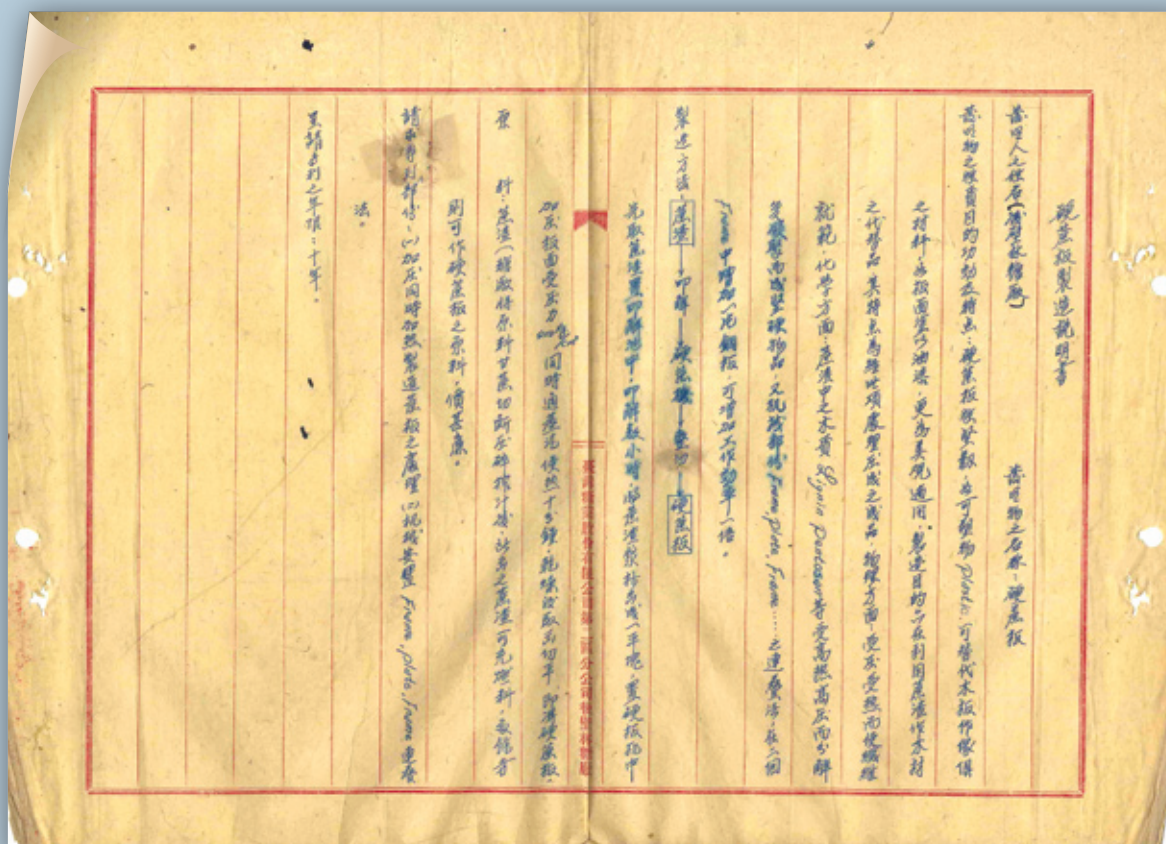 硬蔗板製造說明書
發明人之姓名 發明物之名稱：硬蔗板
發明物之性質目的功効及特点：硬蔗板 堅韌，亦可塑物 Plastic，可替代木板作傢俱
之材料，如板面塗以油漆，更為美觀適用，製造目的亦在利用蔗渣作木材
之代替品，其特点為經此項處理壓成之成品，物理方面，受壓受熱而使纖維
就範，化学方面，蔗渣中之木質 Lignin Pentosan 等受高熱高压而分解
變 聚而成堅硬物品，又机械部份 Frame, plate, Frame……之連疊法，在二個
Frame 中增加一光鋼板，可增加工作効率一倍。
製造方法：蔗渣——叩解——硬蔗機—— 切——硬蔗板
先取蔗渣置叩解機中，叩解数小時，將蔗渣漿 成一平塊，置硬板机中
加压板面受压力 同時通蒸汽使热十多鐘，乾燥後取出切平，即得硬蔗板
原 料：蔗渣（糖廠係原料甘蔗切斷压碎榨汁後，所多之蔗渣可充燃料，最餘者
則可作硬蔗板之原料，價甚廉。
請求專利部份：(1)加压同時加热製造蔗板之處理(2)机械裝置 Frame, plate, Frame 連疊
法。
呈請專利之年限：十年。